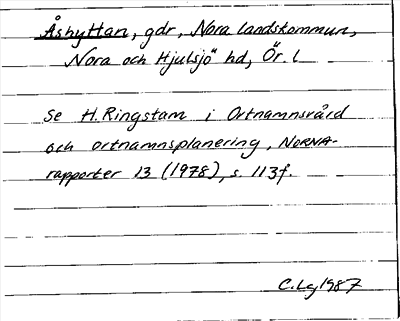 Åshyttan, gdr, Nora landskommun,
Nora och Hjulsjö hd, Ör. l
se H. Ringstam i Ortnamnsvård
och ortnamnsplanering, NORNA-
rapporter 13 (1978), s. 113f.
C. Lg 1987